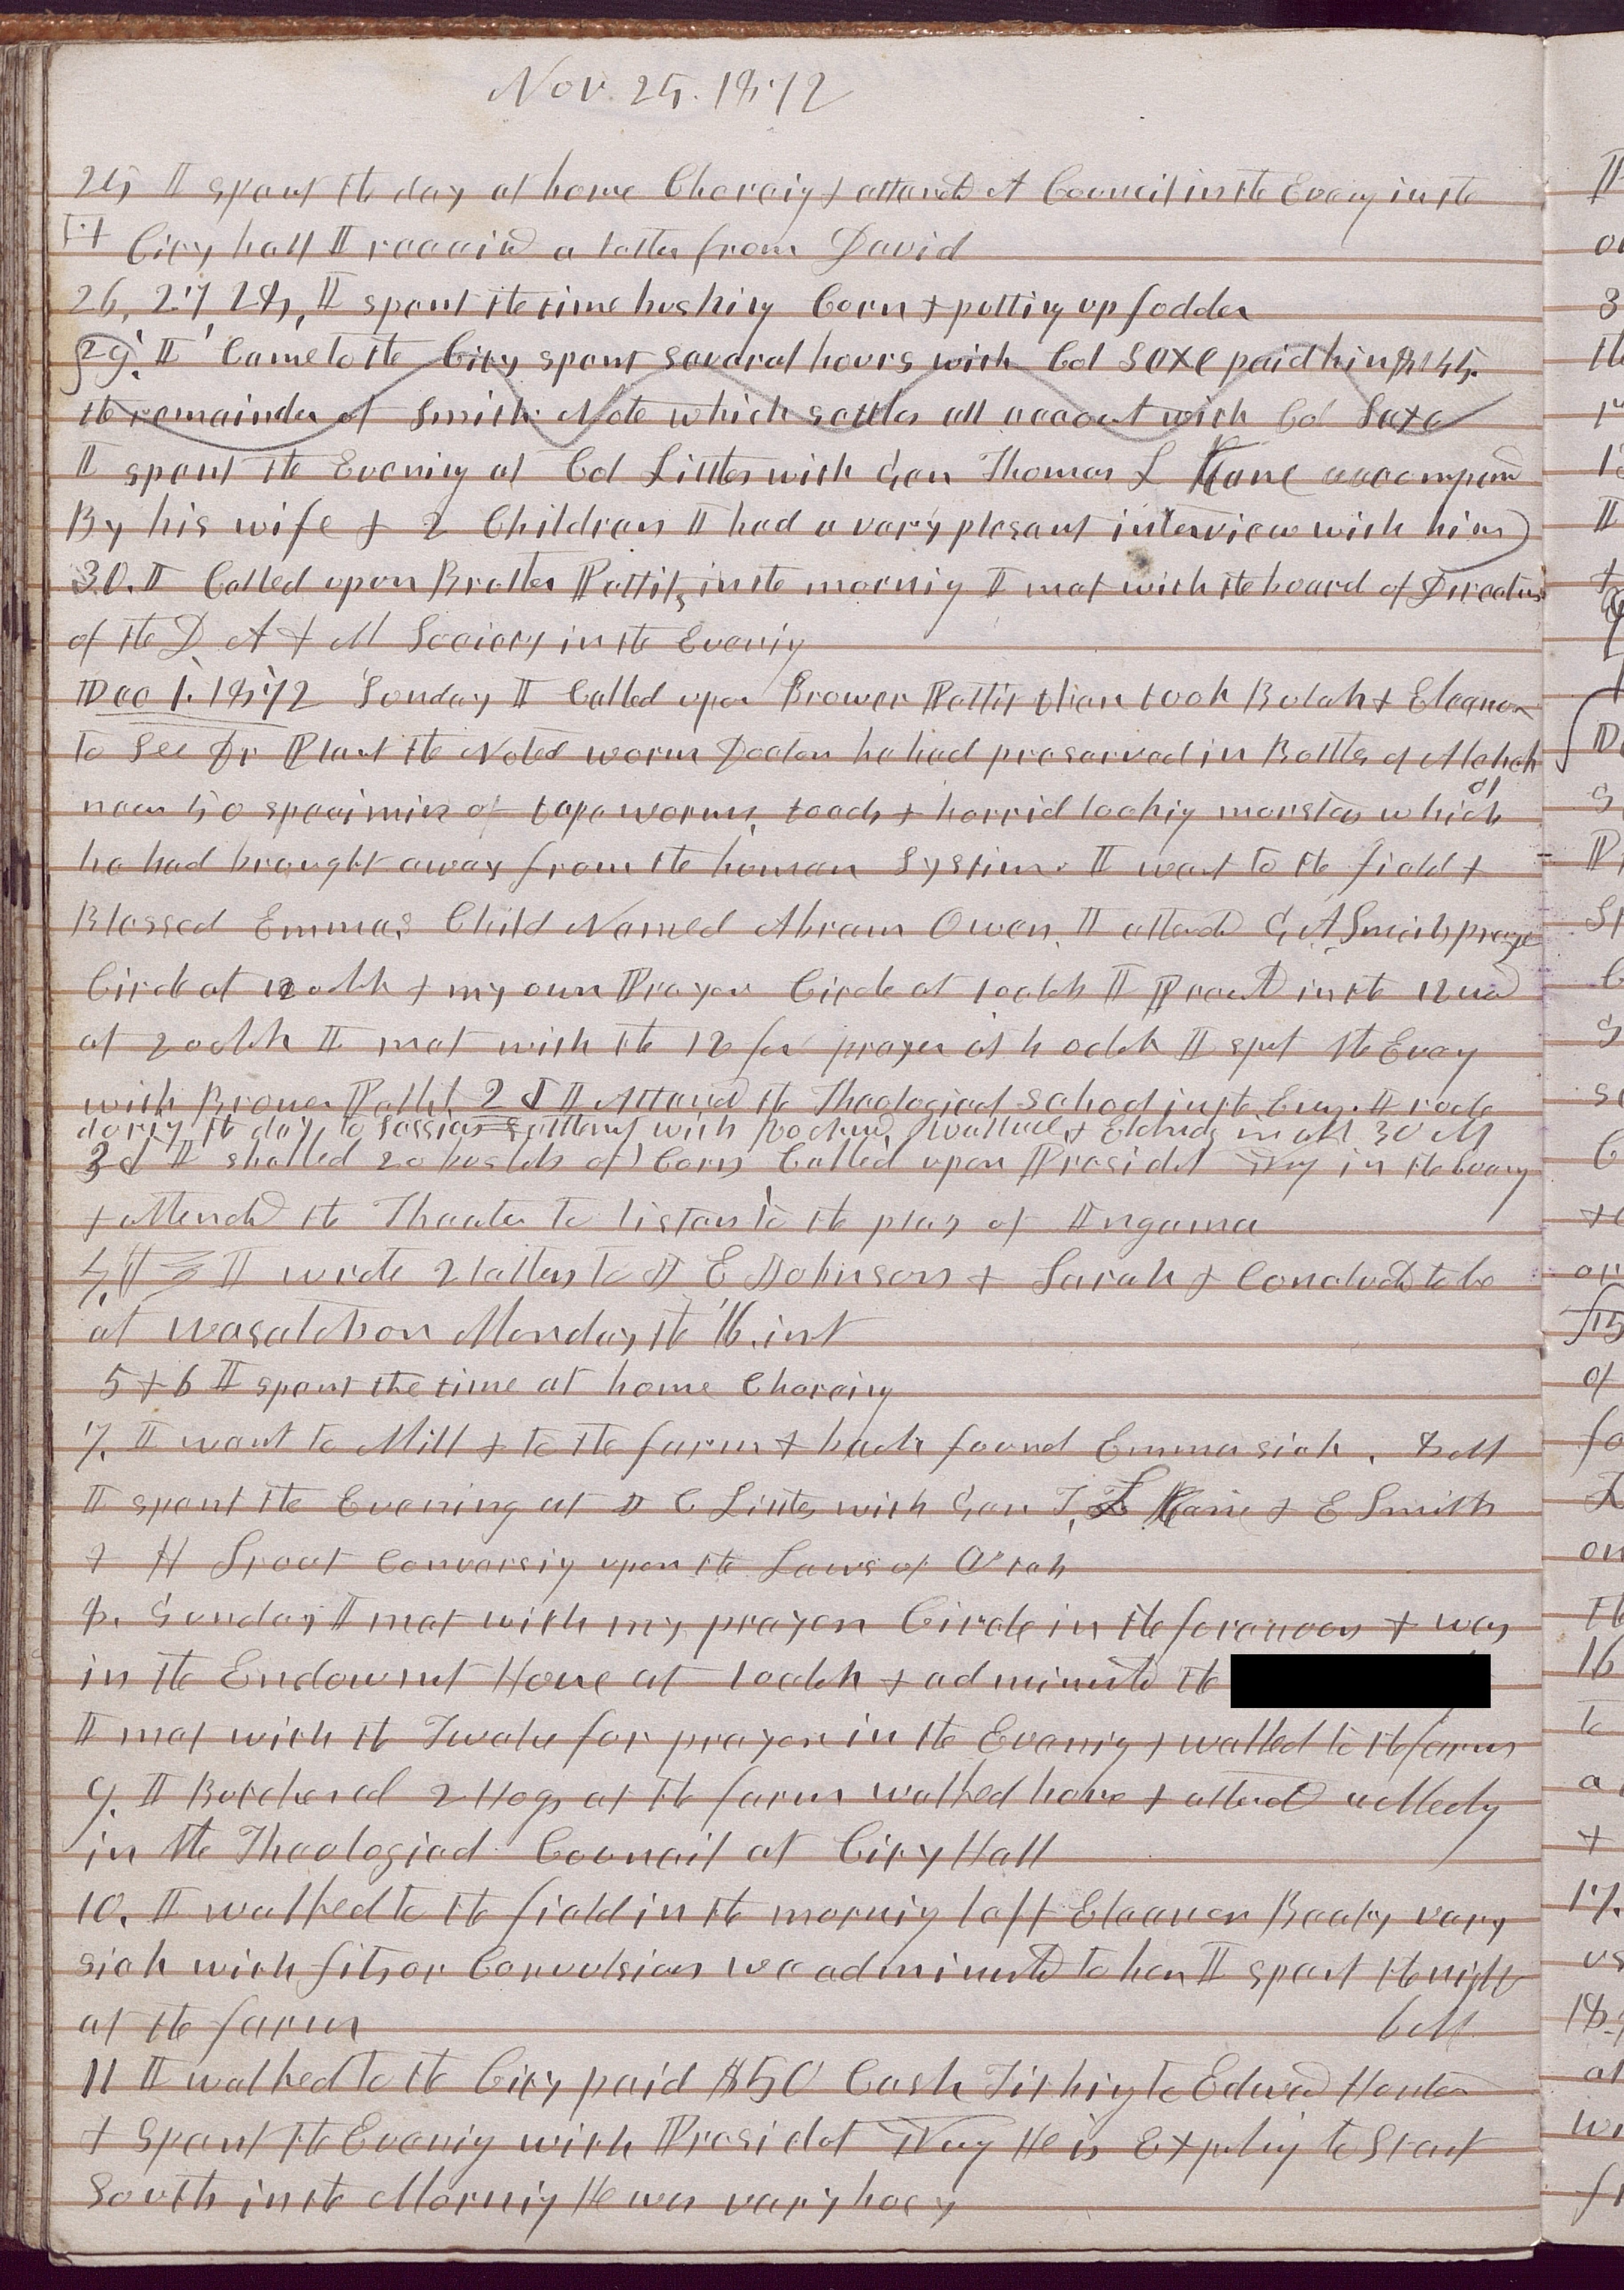 Nov. 25. 1872
25 I spent the day at home Choreing & attend A Council in the Eveng in the
City hall I receied a letter from David
26, 27 28, I spent the time husking Corn & putting up fodder
29. I Came to the City spent several hours with Col Saxe paid him $145.
the remainder of Smith Note which settles all account with Col Saxe
I spent the Evening at Col Littles with Gen Thomas L Kane accompand
By his wife & 2 Children I had a very plesant interview with him
30. I Called upon Brother Pettit in the mornig I met with the board of Directurs
of the D A & M Society in the Evenig
Dec 1. 1872 Sunday I Called upon Brower Pettit then took Bulah & Eleanor
to See Dr Plant the Noted worm Doctor he had preserved in Bottles of Alchoh
ol
near 50 specimins of tape worms, toads & horrid lookig monster which
he had brought away from the human System. I went to the field &
Blessed Emmas Child Named Abram Owen. I attend G. A Smith prayer
Circle at 12 oclk & my own Prayer Circle at 1 oclok I Preacd in the 12 wd
at 2 oclk I met with the 12 for prayer at 4 oclok I spet the Eveg
with Brower Pettit 2d I Attend the Theological School in the Eveg. I rode
durig the day to Sessions Settlemt with Woodruff, Wallace, & Eldridg in all 30 M
3d I shelled 20 bushels of Corn Called upon Presidet Yng in the Eveng
& attend the Theater to listen to the play of Ingomar
4. I wrote 2 letters to D E Johnson & Sarah & Concluded to be
at Wasatch on Monday the 16. inst
5 & 6 I spent the time at home Choreing
7. I went to Mill & to the farm & back found Emma sick. 8 M
I spent the Evening at D C Littles with Gen T. L Kane & E Smith
& H Sroat Conversig upon the Laws of Utah
8. Sunday I met with my prayer Circle in the forenoon & was
in the Endowmt House at 1 oclok & administed the
I met with the Twelve for prayer in the Evenig & walked to the farm
9. I Butchered 2 Hogs at the farm walked home & attend
in the Theological Council at City Hall
10. I walked to the field in the mornig left Eleanor Beaty very
sick with fits or Convulsions we administed to her I spent the night
at the farm 6 M
11 I walked to the City paid $50 Cash Tithig to Edwd Hunter
& Spent the Evenig with Presidet Yung He is Expctig to Start
South in the Mornig He was very busy